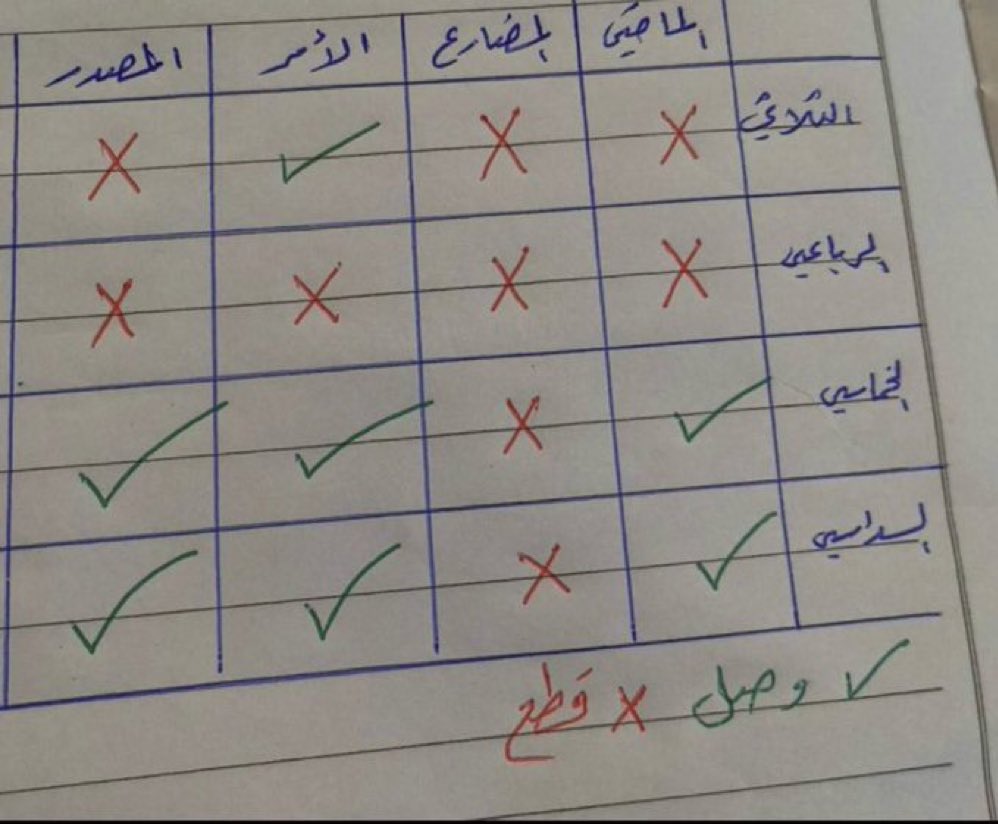 الماضي المضارع الأمر المصدر
الثلاثي X X ✓ X
الرباعي X X X X
الخماسي ✓ X ✓ ✓
السداسي ✓ X ✓ ✓
✓ وصل X قطع